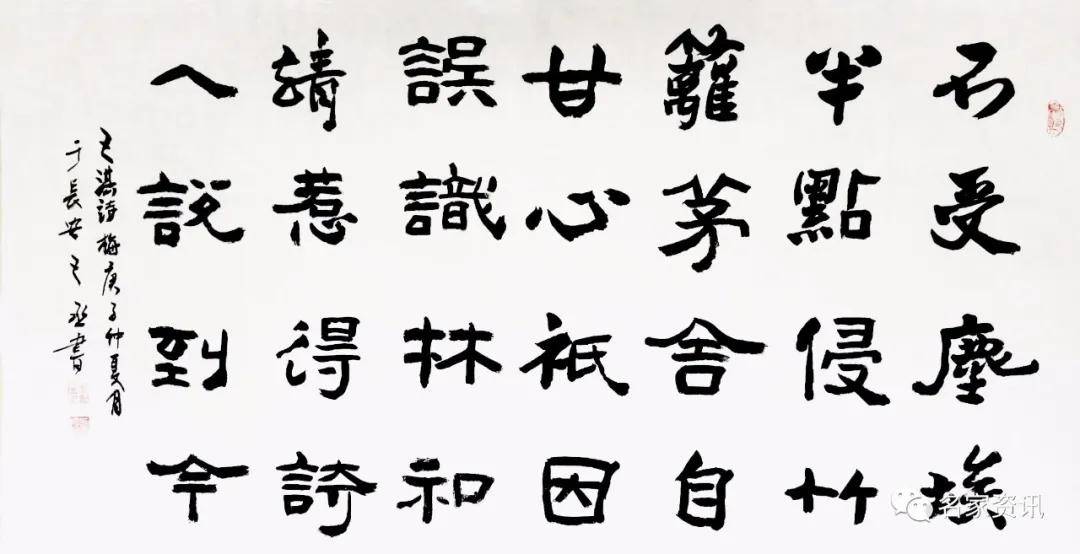 不受塵埃
半點侵竹
籬茅舍自
甘心祇因
誤識林和
靖惹得詩
人說到今
王淇詩梅庚子仲夏月
于長安王丞書
名家资讯